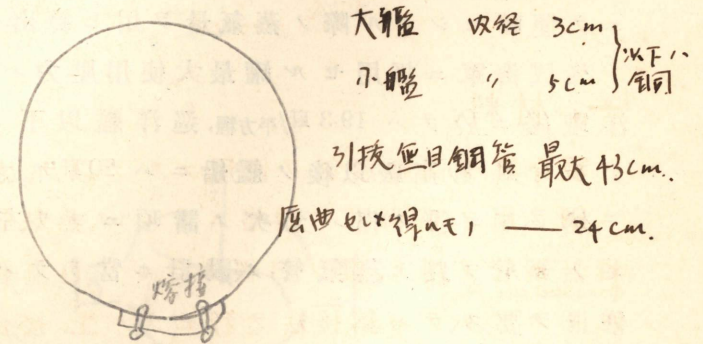 大艦 内径 3cm
小艦 〃 5cm
以下ハ銅
引抜無目鋼管 最大43cm.
屈曲セシメ得ルモノ — 24cm.
熔接